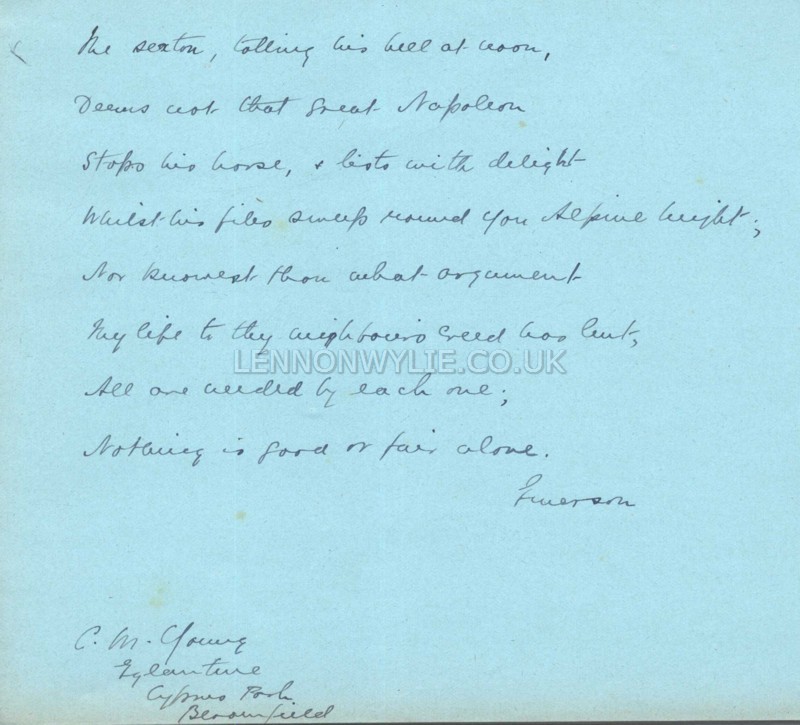 The sexton, tolling his bell at noon,
Deems not that great Napoleon
Stops his horse, & lists with delight
Whilst his files sweep round yon Alpine height;
Nor knowest thou what argument
My life to thy neighbour's creed has lent,
LENNONWYLIE.CO.UK
All are needed by each one;
Nothing is good or fair alone.
Emerson
C. M. Young
Eglantine
Cyprus Park
Bloomfield